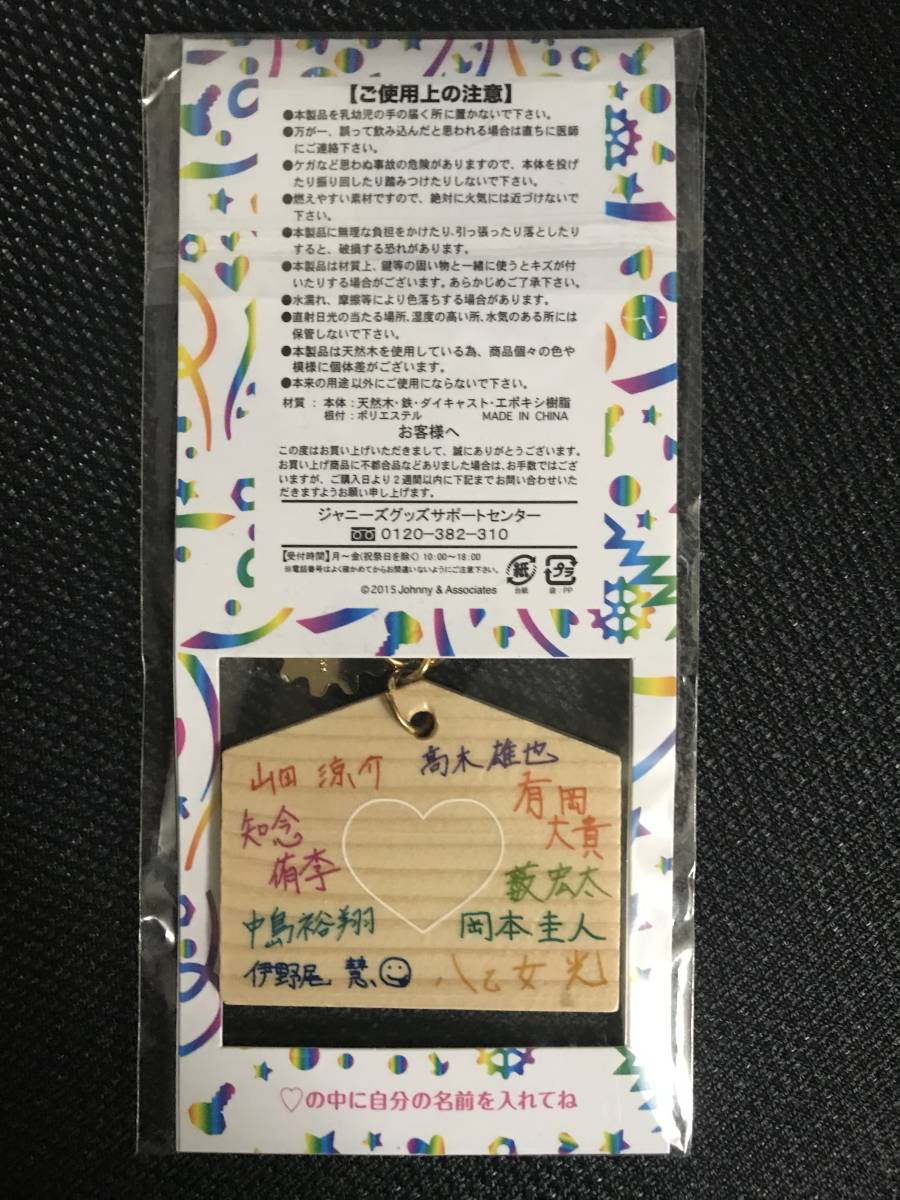 【ご使用上の注意】
●本製品を乳幼児の手の届く所に置かないで下さい。
●万が一、誤って飲み込んだと思われる場合は直ちに医師
にご連絡下さい。
●ケガなど思わぬ事故の危険がありますので、本体を投げ
たり振り回したり踏みつけたりしないで下さい。
●燃えやすい素材ですので、絶対に火気には近づけないで
下さい。
●本製品に無理な負担をかけたり、引っ張ったり落としたり
すると、破損する恐れがあります。
●本製品は材質上、鍵等の固い物と一緒に使うとキズが付
いたりする場合がございます。あらかじめご了承下さい。
●水濡れ、摩擦等により色落ちする場合があります。
●直射日光の当たる場所、湿度の高い所、水気のある所には
保管しないで下さい。
●本製品は天然木を使用している為、商品個々の色や
模様に個体差がございます。
●本来の用途以外にご使用にならないで下さい。
材質：本体：天然木・鉄・ダイキャスト・エポキシ樹脂
根付：ポリエステル MADE IN CHINA
お客様へ
この度はお買い上げいただきまして、誠にありがとうございます。
お買い上げ商品に不都合品などありました場合は、お手数ではござ
いますが、ご購入日より2週間以内に下記までお問い合わせいた
だきますようお願い申し上げます。
ジャニーズグッズサポートセンター
0120-382-310
【受付時間】月〜金(祝祭日を除く) 10:00〜18:00
※電話番号はよく確かめてからお間違いないようにご注意下さい。
紙
台紙
プラ
袋：PP
©2015 Johnny & Associates
山田 涼介
髙木雄也
有岡
大貴
知念
侑李
薮宏太
中島裕翔
岡本圭人
伊野尾 慧
八乙女 光
♡の中に自分の名前を入れてね